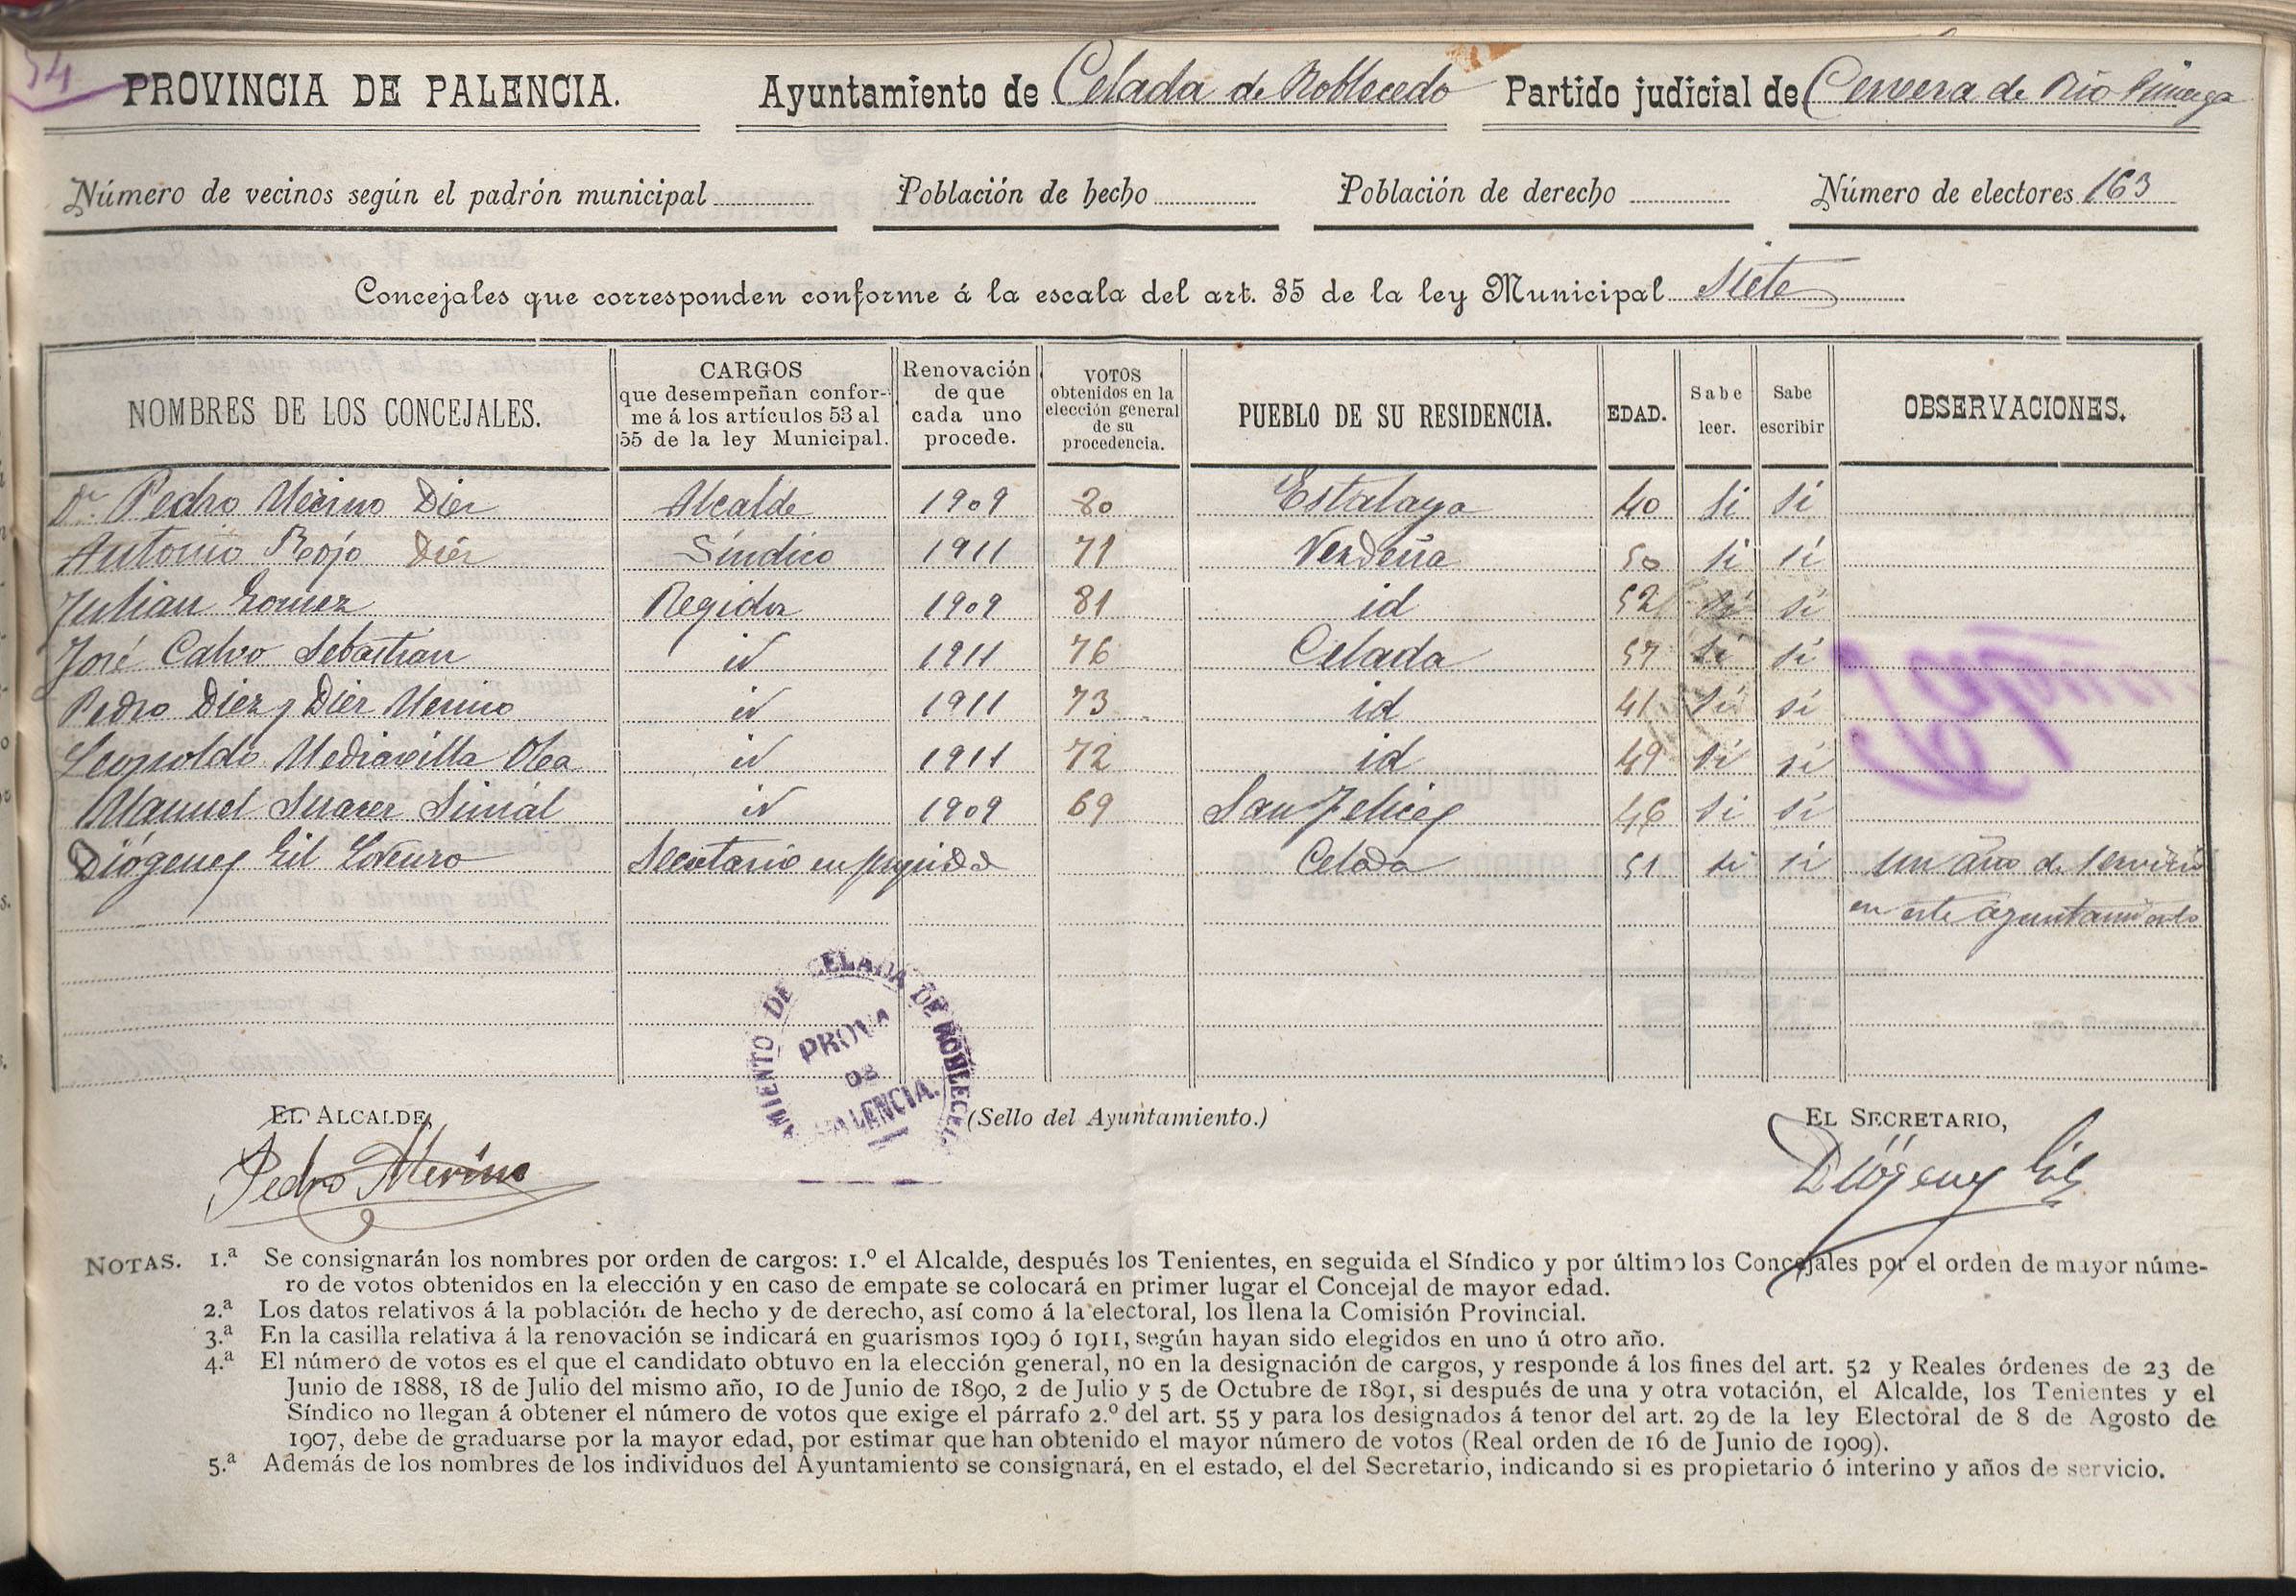 54
PROVINCIA DE PALENCIA. Ayuntamiento de Celada de Roblecedo Partido judicial de Cervera de Rio Pisuerga
Número de vecinos según el padrón municipal Población de hecho Población de derecho Número de electores 163
Concejales que corresponden conforme á la escala del art. 35 de la ley Municipal Siete
NOMBRES DE LOS CONCEJALES. CARGOS que desempeñan confor- me á los artículos 53 al 55 de la ley Municipal. Renovación de que cada uno procede. VOTOS obtenidos en la elección general de su procedencia. PUEBLO DE SU RESIDENCIA. EDAD. Sabe leer. Sabe escribir OBSERVACIONES.
Dn Pedro Merino Diez Alcalde 1909 80 Estalaya 40 si si
Antonio Rojo Diez Síndico 1911 71 Verdeña 50 si si
Julian Gomez Regidor 1909 81 id 52 si si
José Calvo Sebastian id 1911 76 Celada 57 si si
Pedro Diez y Diez Merino id 1911 73 id 41 si si
Leopoldo Mediavilla Olea id 1911 72 id 49 si si
Manuel Suarez Simal id 1909 69 San Felices 46 si si
Diógenes Gil Lorenzo Secretario en propiedad Celada 51 si si un año de servicio
en este ayuntamiento
AMIENTO DE CELADA DE ROBLECED
PROVA
DE
PALENCIA.
EL ALCALDE, (Sello del Ayuntamiento.) EL SECRETARIO,
Pedro Merino Diógenes Gil
NOTAS. 1.ª Se consignarán los nombres por orden de cargos: 1.º el Alcalde, después los Tenientes, en seguida el Síndico y por último los Concejales por el orden de mayor núme-
ro de votos obtenidos en la elección y en caso de empate se colocará en primer lugar el Concejal de mayor edad.
2.ª Los datos relativos á la población de hecho y de derecho, así como á la electoral, los llena la Comisión Provincial.
3.ª En la casilla relativa á la renovación se indicará en guarismos 1909 ó 1911, según hayan sido elegidos en uno ú otro año.
4.ª El número de votos es el que el candidato obtuvo en la elección general, no en la designación de cargos, y responde á los fines del art. 52 y Reales órdenes de 23 de
Junio de 1888, 18 de Julio del mismo año, 10 de Junio de 1890, 2 de Julio y 5 de Octubre de 1891, si después de una y otra votación, el Alcalde, los Tenientes y el
Síndico no llegan á obtener el número de votos que exige el párrafo 2.º del art. 55 y para los designados á tenor del art. 29 de la ley Electoral de 8 de Agosto de
1907, debe de graduarse por la mayor edad, por estimar que han obtenido el mayor número de votos (Real orden de 16 de Junio de 1909).
5.ª Además de los nombres de los individuos del Ayuntamiento se consignará, en el estado, el del Secretario, indicando si es propietario ó interino y años de servicio.